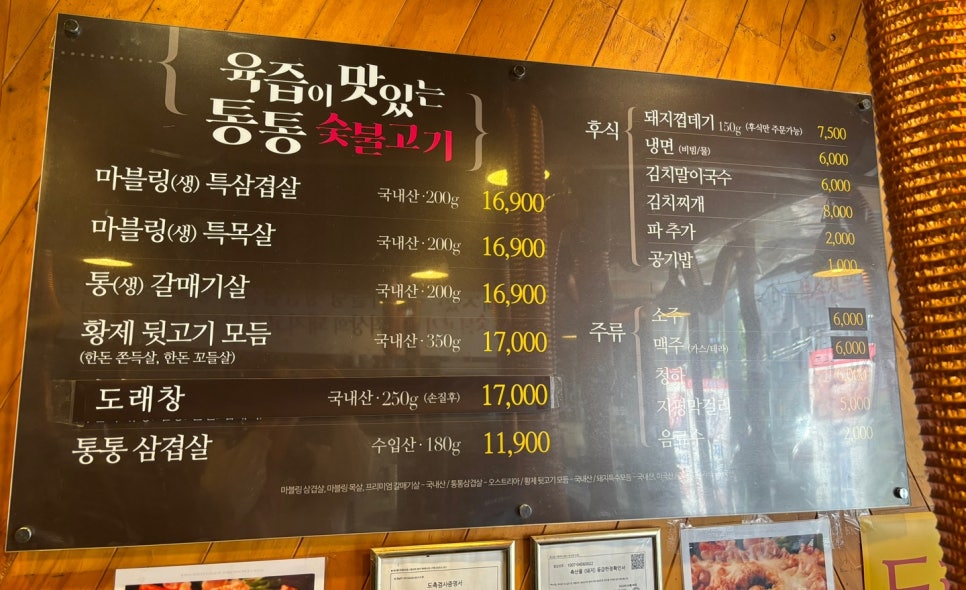 육즙이 맛있는
통통 숯불고기
마블링(생) 특삼겹살 국내산·200g 16,900
마블링(생) 특목살 국내산·200g 16,900
통(생) 갈매기살 국내산·200g 16,900
황제 뒷고기 모듬 국내산·350g 17,000
(한돈 쫀득살, 한돈 꼬들살)
도래창 국내산·250g (손질후) 17,000
통통 삼겹살 수입산·180g 11,900
후식
돼지껍데기 150g (후식만 주문가능) 7,500
냉면 (비빔/물) 6,000
김치말이국수 6,000
김치찌개 8,000
파 추가 2,000
공기밥 1,000
주류
소주 6,000
맥주 (카스/테라) 6,000
청하
지평막걸리 5,000
음료수 2,000
마블링 삼겹살, 마블링 목살, 프리미엄 갈매기살 - 국내산 / 통통삼겹살 - 오스트리아 / 황제 뒷고기 모듬 - 국내산 / 돼지특수모듬 - 국내산,
도축검사증명서